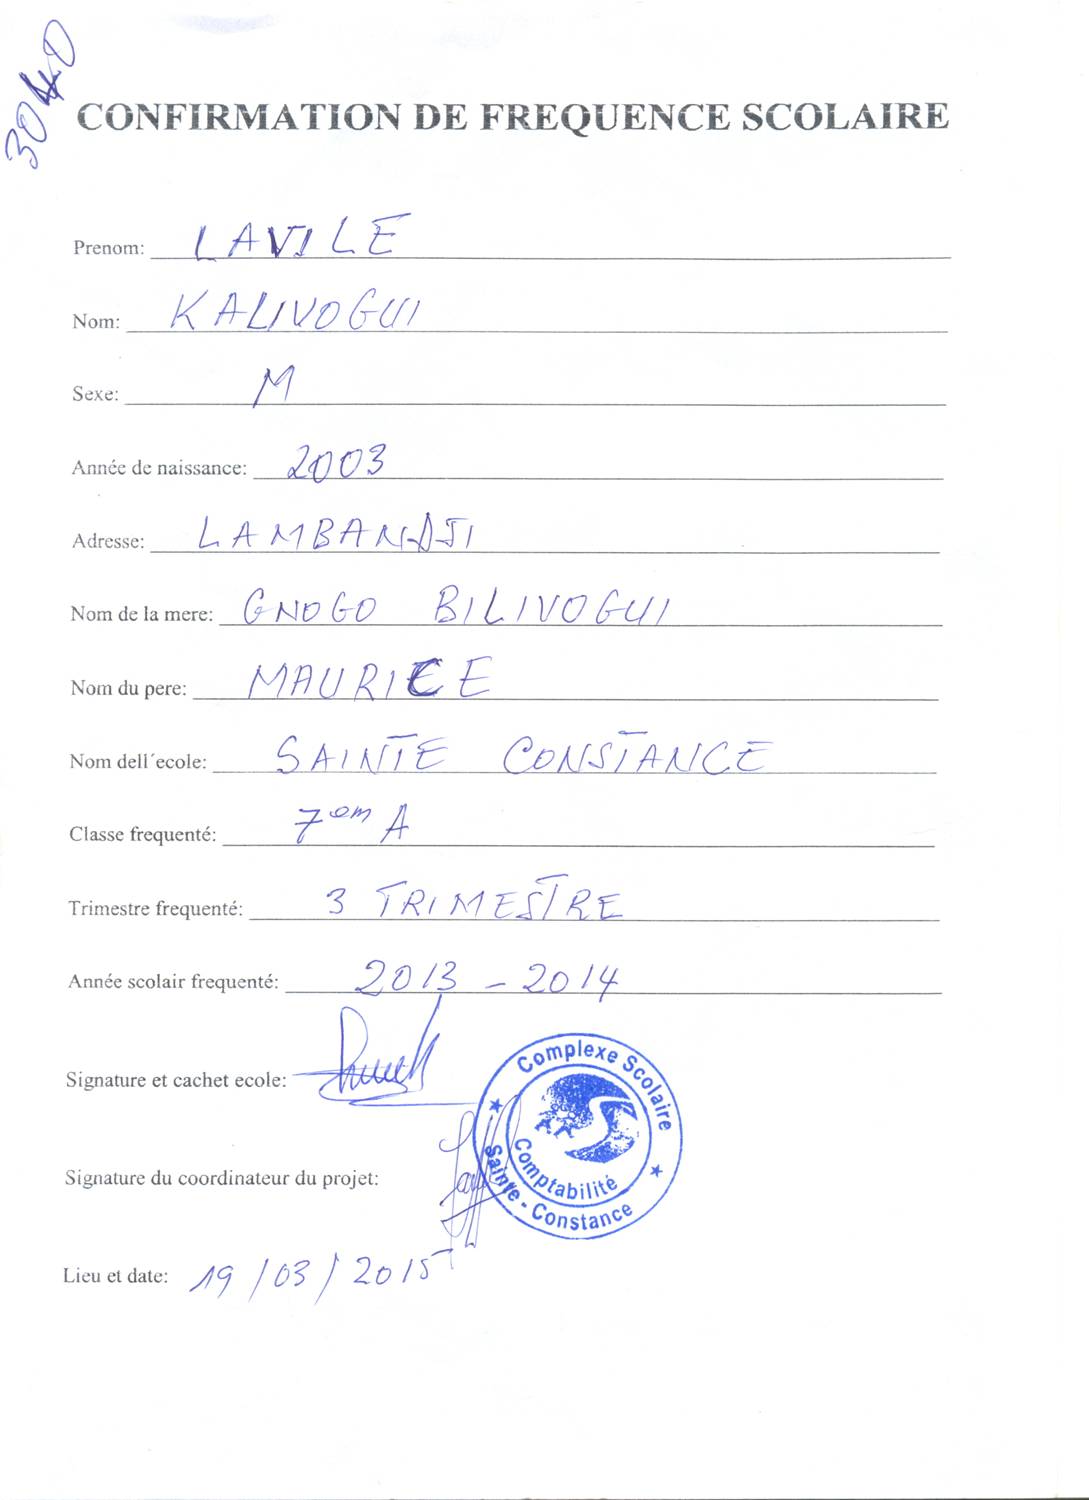 CONFIRMATION DE FREQUENCE SCOLAIRE
Prenom: LAVILE
Nom: KALIVOGUI
Sexe: M
Année de naissance: 2003
Adresse: LAMBANDJI
Nom de la mere: GNOGO BILIVOGUI
Nom du pere: MAURICE
Nom dell´ecole: SAINTE CONSTANCE
Classe frequenté: 7em A
Trimestre frequenté: 3 TRIMESTRE
Année scolair frequenté: 2013 - 2014
Signature et cachet ecole:
Complexe Scolaire
Comptabilité
Sainte - Constance
Signature du coordinateur du projet:
Lieu et date: 19/03/2015